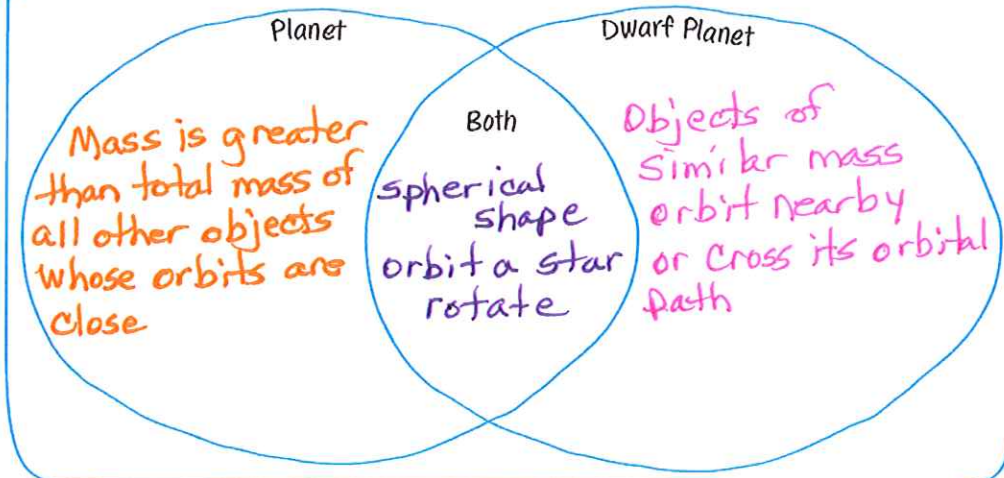 Planet
Dwarf Planet
Mass is greater
than total mass of
all other objects
whose orbits are
close
Both
spherical
shape
orbit a star
rotate
Objects of
similar mass
orbit nearby
or cross its orbital
path